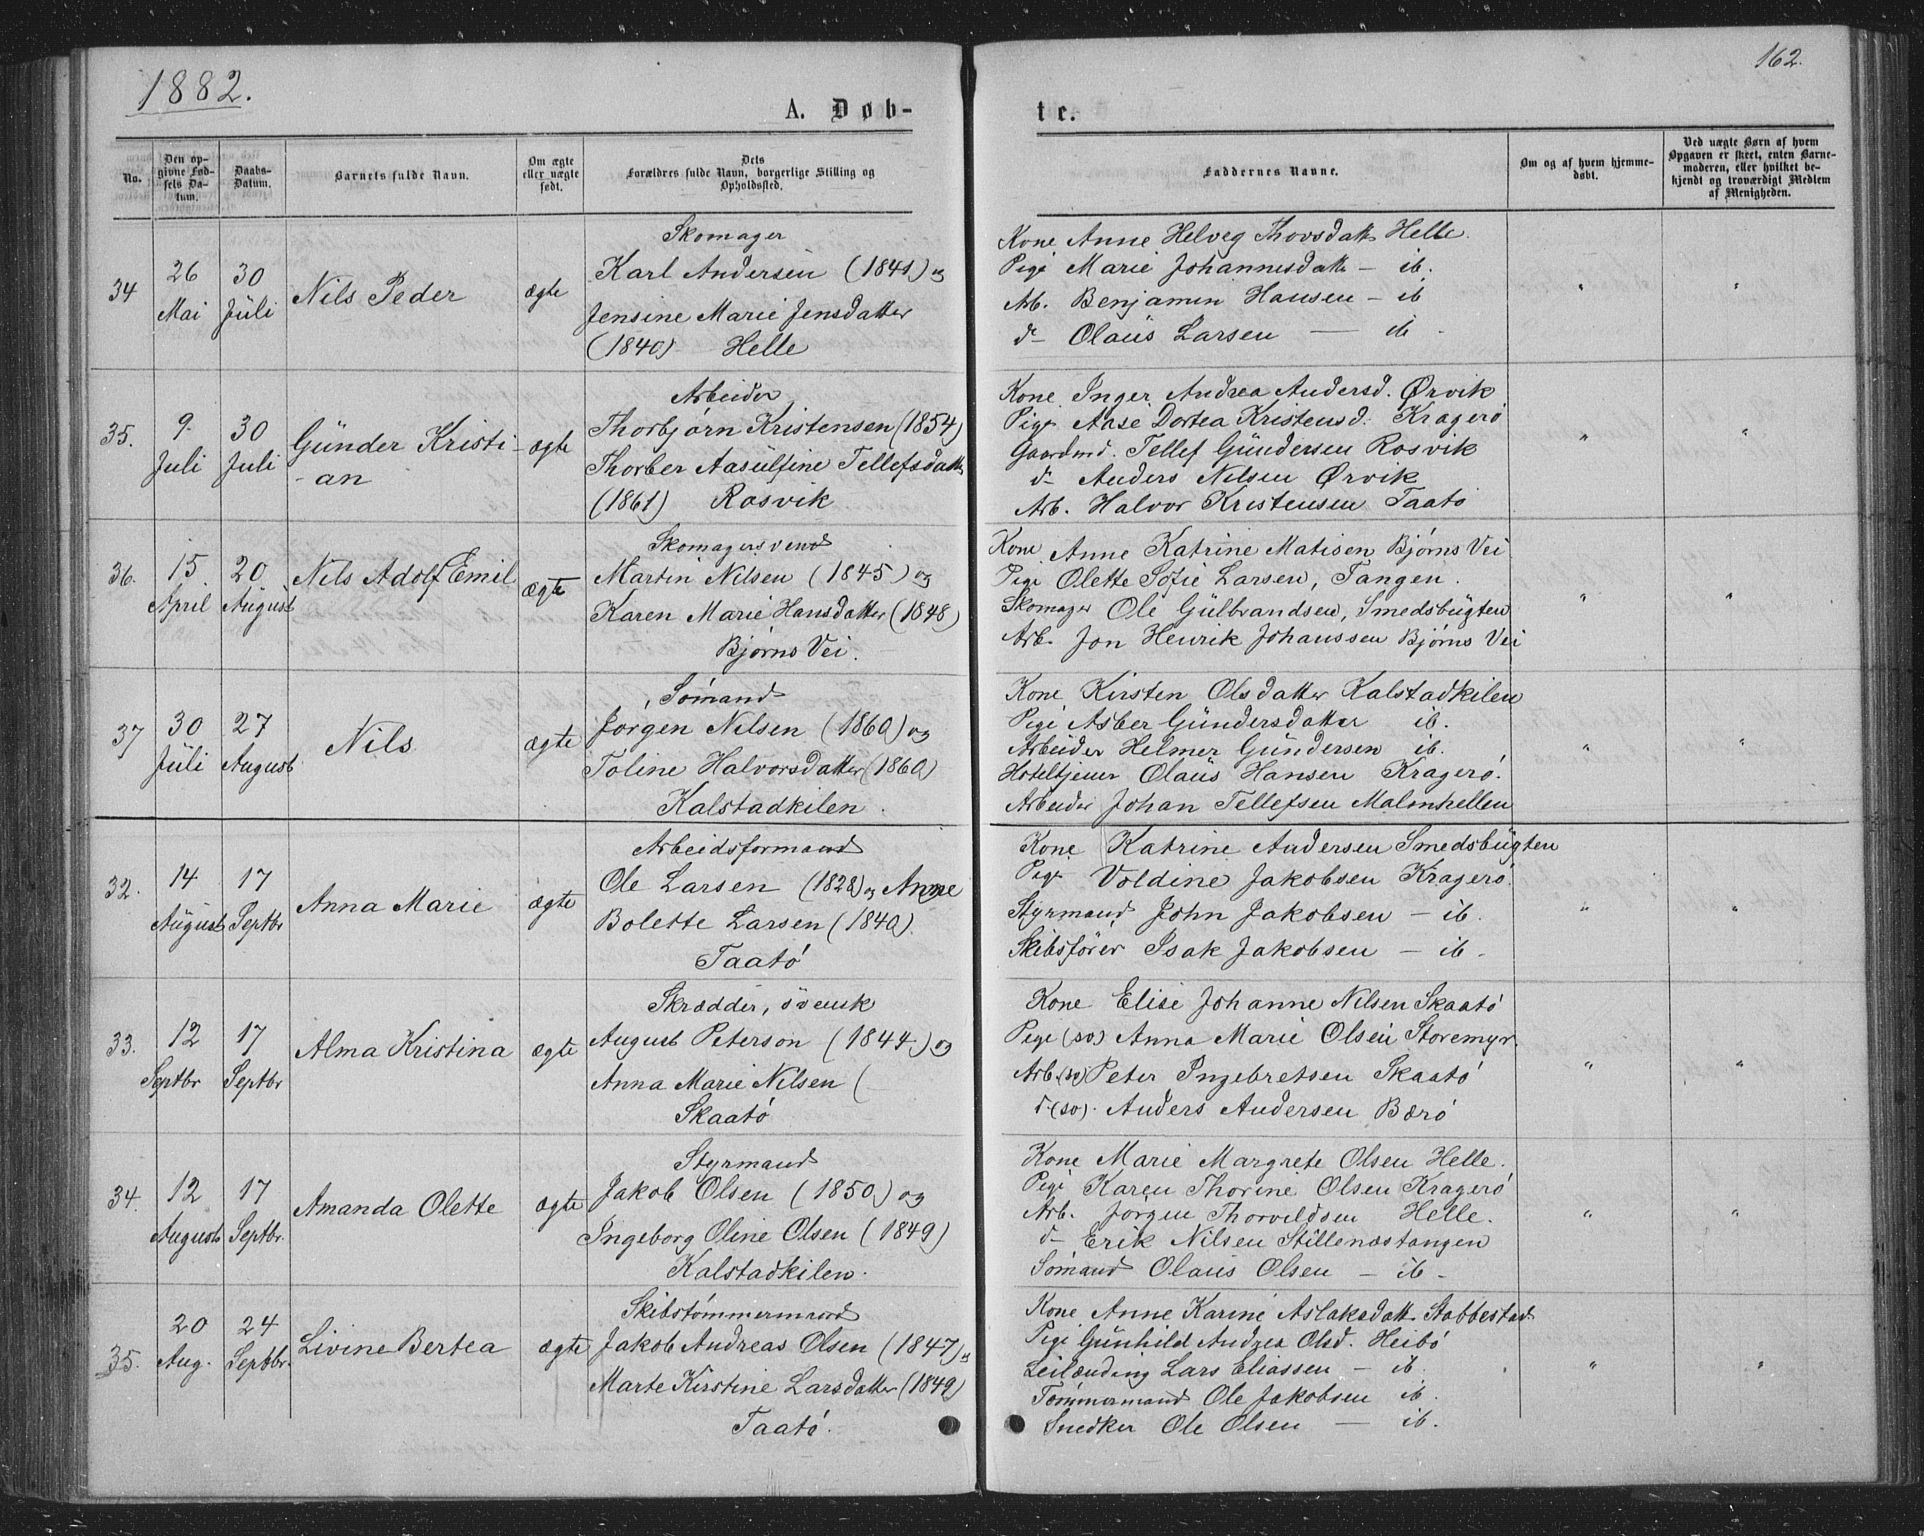 1882.
162.
A. Døb-
te.
No.
Den op-
givne Fød-
sels Da-
tum.
Daabs-
Datum.
Barnets fulde Navn.
Om ægte
eller uægte
født.
Dets
Forældres fulde Navn, borgerlige Stilling og
Opholdssted.
Faddernes Navne.
Om og af hvem hjemme-
døbt.
Ved uægte Børn af hvem
Opgaven er skeet, enten Barne-
moderen, eller hvilket be-
kjendt og troværdigt Medlem
af Menigheden.
34
26
Mai
30
Juli
Nils Peder
ægte
Skomager
Karl Andersen (1841) og
Jensine Marie Jensdatter
(1840) Helle
Kone Anne Helveg Thovsdatt Helle.
Pige Marie Johannesdatt — ib.
Arb. Benjamin Hansen — ib
d— Olaus Larsen — ib
"
"
35.
9.
Juli
30
Juli
Günder Kristi-
-an
ægte
Arbeider
Thorbjørn Kristensen (1854)
Thorber Aasulfine Tellefsdatt
(1861) Rosvik
Kone Inger Andrea Andersd. Ørvik
Pige Aase Dortea Kristensd. Kragerø
Gaardmd. Tellef Gündersen Rosvik
d— Anders Nilsen Ørvik
Arb. Halvor Kristensen Taatø
"
"
36.
15
April
20
August
Nils Adolf Emil
ægte
Skomagersvend
Martin Nilsen (1845) og
Karen Marie Hansdatter (1848)
Bjørns Vei.
Kone Anne Katrine Matisen Bjørns Vei
Pige Olette Sofie Larsen, Tangen.
Skomager Ole Gülbrandsen, Smedsbugten
Arb. Jon Henrik Johanssen Bjørns Vei
"
"
37
30
Juli
27
August
Nils
ægte
Sømand
Jørgen Nilsen (1860) og
Toline Halvorsdatter (1860)
Kalstadkilen.
Kone Kirsten Olsdatter Kalstadkilen
Pige Asber Gündersdatter ib.
Arbeider Helmer Gündersen ib.
Hoteltjener Olaus Hansen Kragerø.
Arbeider Johan Tellefsen Malmhellen
"
"
32.
14
August
17
Septbr
Anna Marie
ægte
Arbeidsformand
Ole Larsen (1828) og Anne
Bolette Larsen (1840).
Taatø
Kone Katrine Andersen Smedsbugten
Pige Voldine Jakobsen Kragerø.
Styrmand John Jakobsen — ib.
Skibsfører Isak Jakobsen — ib.
"
"
33.
12
Septbr
17
Septbr
Alma Kristina
ægte
Skrædder, svensk
August Peterson (1844) og
Anna Marie Nilsen (
Skaatø
Kone Elise Johanne Nilsen Skaatø
Pige (so) Anna Marie Olsen Storemyr.
Arb. (so) Peter Ingebretsen Skaatø
d— (so). Anders Andersen Bærø
"
"
34.
12
August
17
Septbr.
Amanda Olette
ægte
Styrmand
Jakob Olsen (1850) og
Ingeborg Oline Olsen (1849)
Kalstadkilen.
Kone Marie Margrete Olsen Helle.
Pige Karen Thorine Olsen Kragerø
Arb. Jørgen Thorvildsen Helle.
d— Erik Nilsen Stillenæstangen
Sømand Olaus Olsen — ib —
"
"
35.
20
Aug.
24
Septbr.
Livine Bertea
ægte
Skibstømmermand
Jakob Andreas Olsen (1847) "
Marte Kirstine Larsdatter (1849)
Taatø.
Kone Anne Karine Aslaksdatt. Stabbestad
Pige Gunhild Andrea Olsd. Heibø
Leilænding Lars Eliassen — ib.
Tømmermand Ole Jakobsen ib.
Snedker Ole Olsen — ib.
"
"